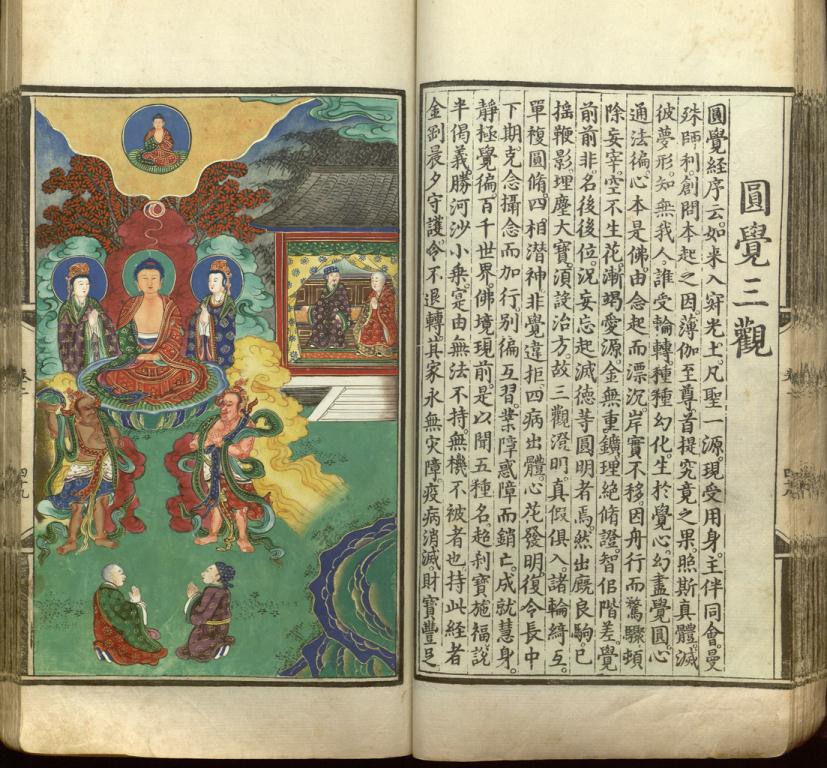 圓覺三觀
圓覺經序云。如來入寂光土。凡聖一源。現受用身。主伴同會。曼
殊師利。創問本起之因。薄伽至尊。首提究竟之果。照斯真體。滅
彼夢形。知無我人。誰受輪轉。種種幻化。生於覺心。幻盡覺圓。心
通法徧。心本是佛。由念起而漂沉。岸實不移。因舟行而驚驟。頓
除妄宰。空不生花。漸竭愛源。金無重鑛。理絕脩證。智佀階差。覺
前前非。名後後位。況妄忘起滅。德等圓明者焉。然出廐良駒。已
搖鞭影。埋塵大寶。須設治方。故三觀澄明。真假俱入。諸輪綺互。
單複圓脩。四相潛神。非覺違拒。四病出體。心花發明。復令長中
下期。克念攝念。而加行別徧。互習業障惑障。而銷亡。成就慧身。
靜極覺徧。百千世界。佛境現前。是以聞五種名。超剎寶施福。說
半偈義。勝河沙小乘。寔由無法不持。無機不被者也。持此經者
金剛晨夕守護。令不退轉。其家永無灾障。疫病消滅。財寶豐足